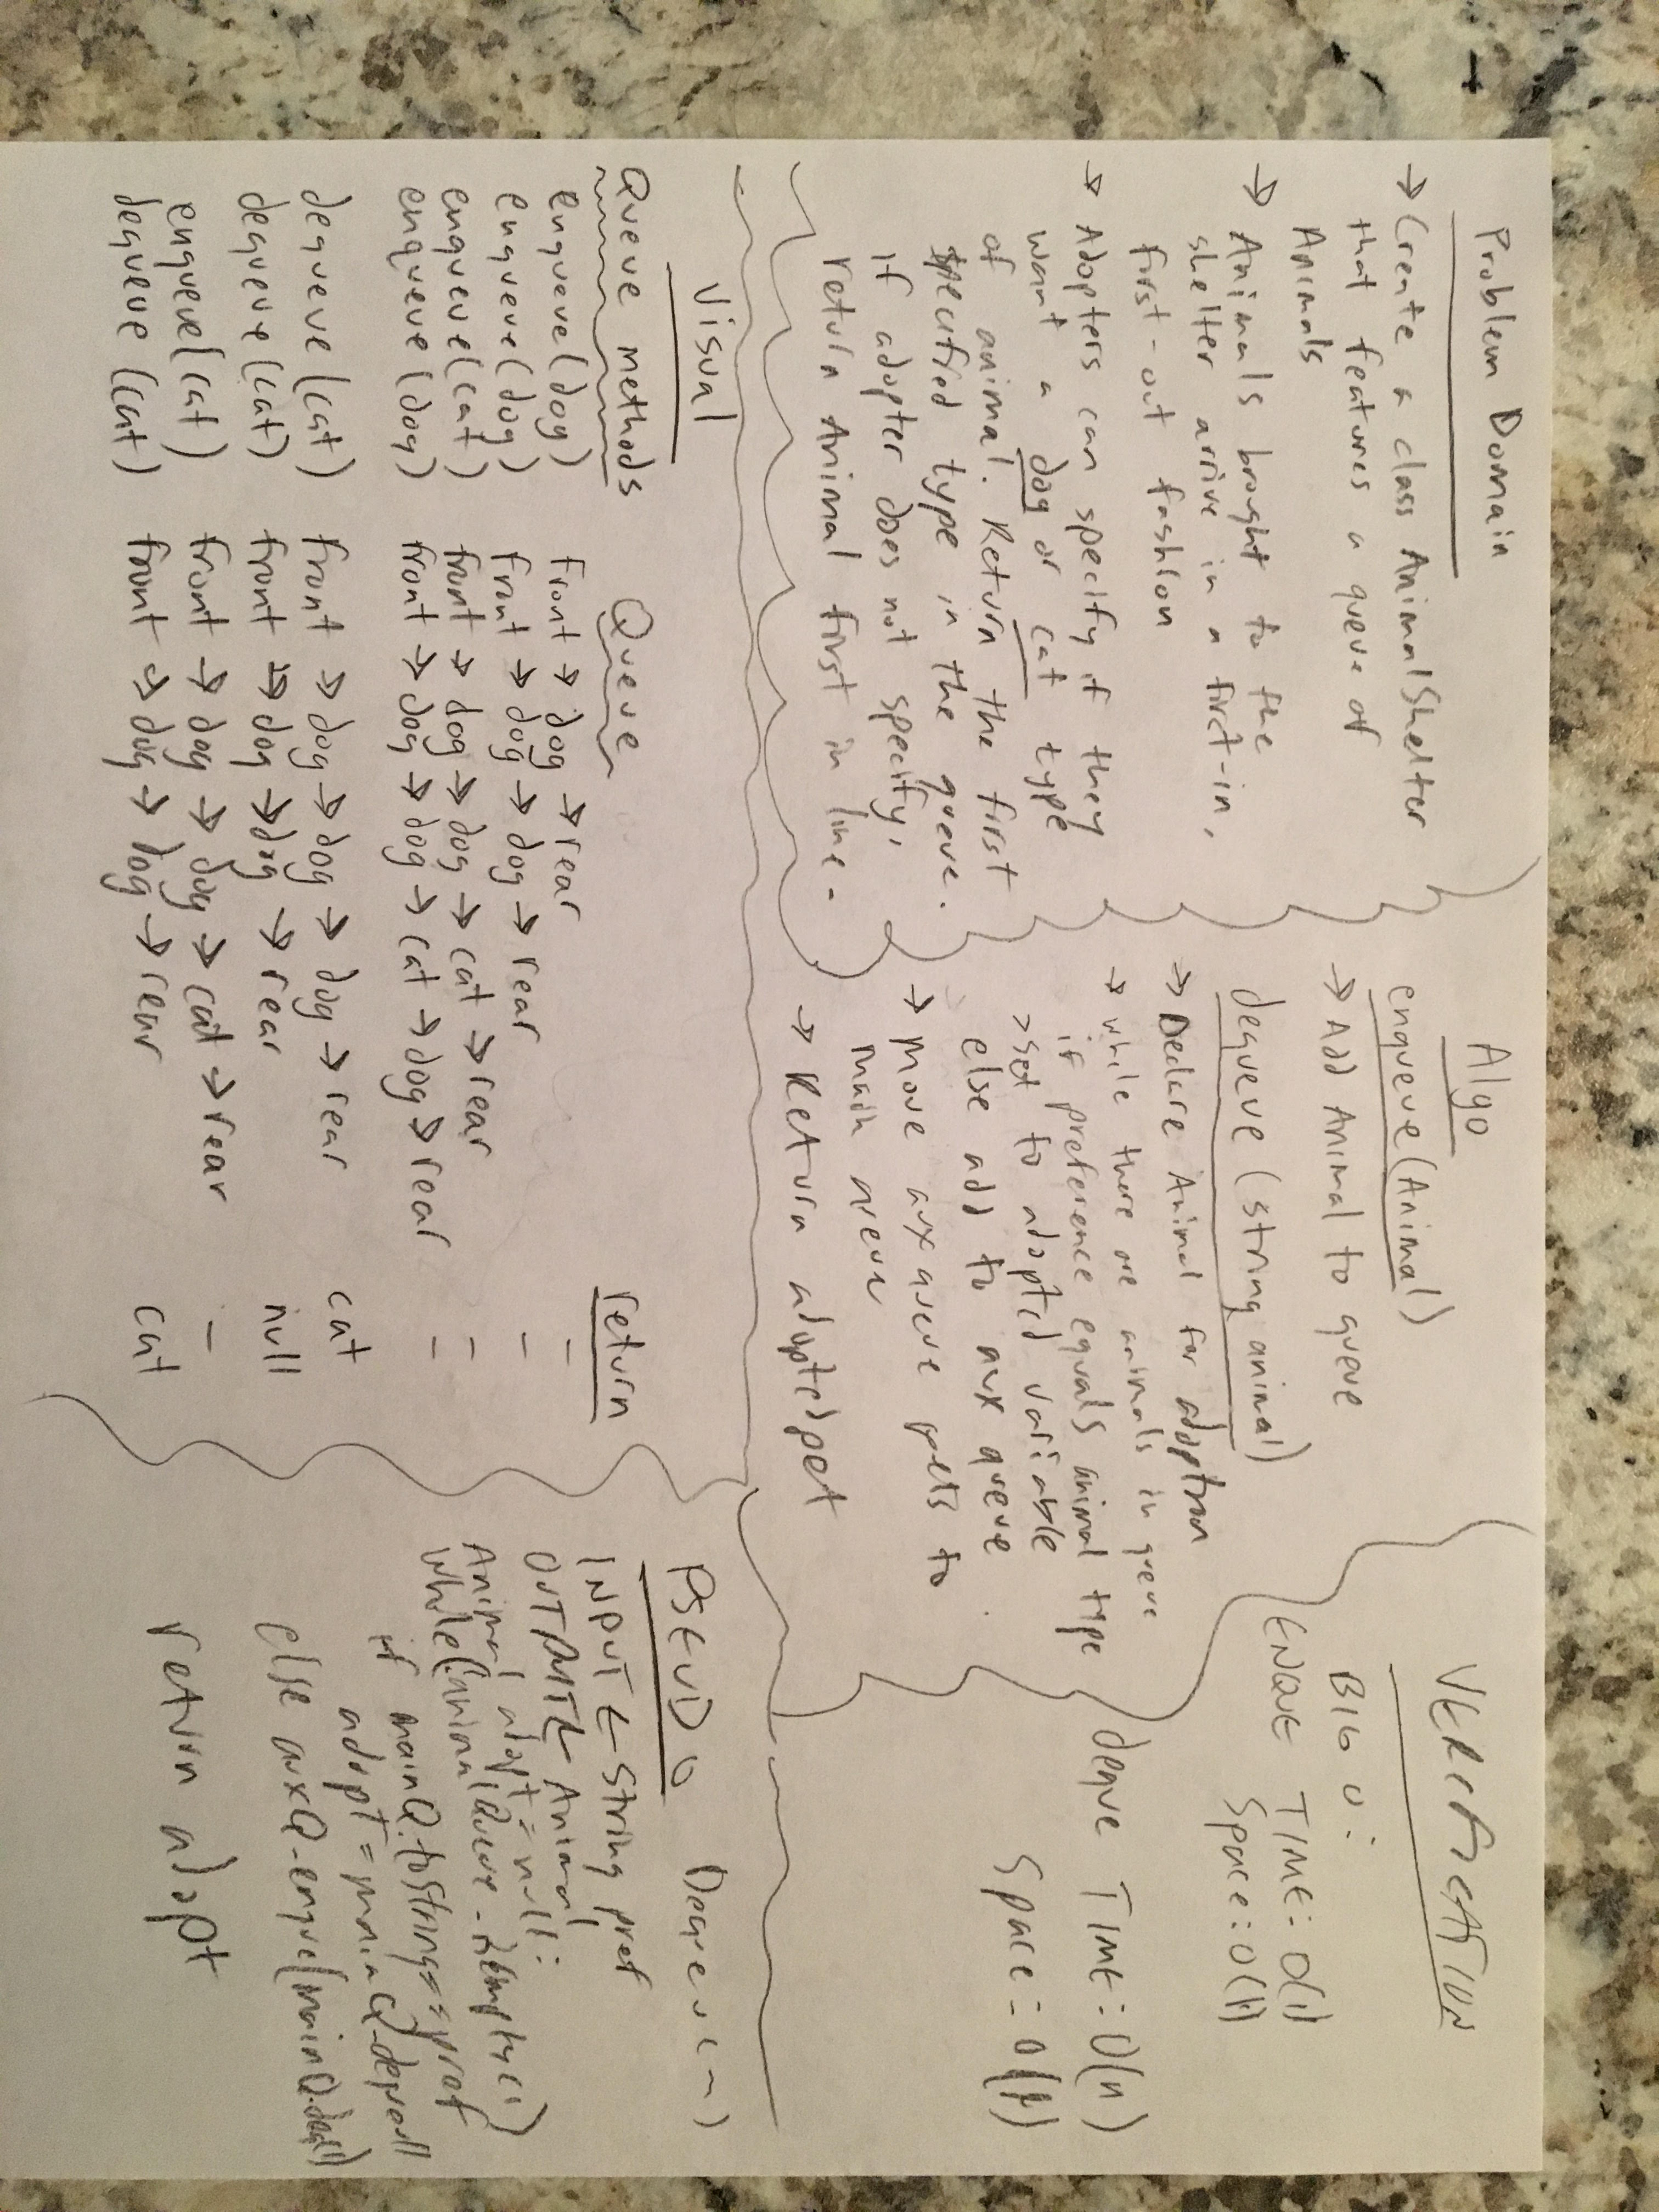 Problem Domain
→ Create a class AnimalShelter
that features a queue of
Animals
→ Animals brought to the
shelter arrive in a first-in,
first-out fashion
→ Adopters can specify if they
want a dog or cat type
of animal. Return the first
specified type in the queue.
if adopter does not specify,
return Animal first in line.
Algo
enqueue(Animal)
→ Add Animal to queue
dequeue(string animal)
→ Declare Animal for adoption
→ while there are animals in queue
if preference equals animal type
> set to adopted variable
else add to aux queue
→ Move aux queue pets to
main queue
→ Return adopted pet
VERIFICATION
BIG O:
ENQUE TIME: O(1)
Space: O(1)
deque TIME: O(n)
Space: O(1)
Visual
Queue methods Queue return
enqueue(dog) front → dog → rear –
enqueue(dog) front → dog → dog → rear –
enqueue(cat) front → dog → dog → cat → rear –
enqueue(dog) front → dog → dog → cat → dog → rear –
dequeue(cat) front → dog → dog → dog → rear cat
dequeue(cat) front → dog → dog → rear null
enqueue(cat) front → dog → dog → cat → rear –
dequeue(cat) front → dog → dog → rear cat
PSEUDO Dequeue(~)
INPUT ← String pref
OUTPUT ← Animal
Animal adopt = null;
while(animalQueue.isEmpty())
if mainQ.toString == pref
adopt = mainQ.dequeue()
else auxQ.enque(mainQ.deq())
return adopt